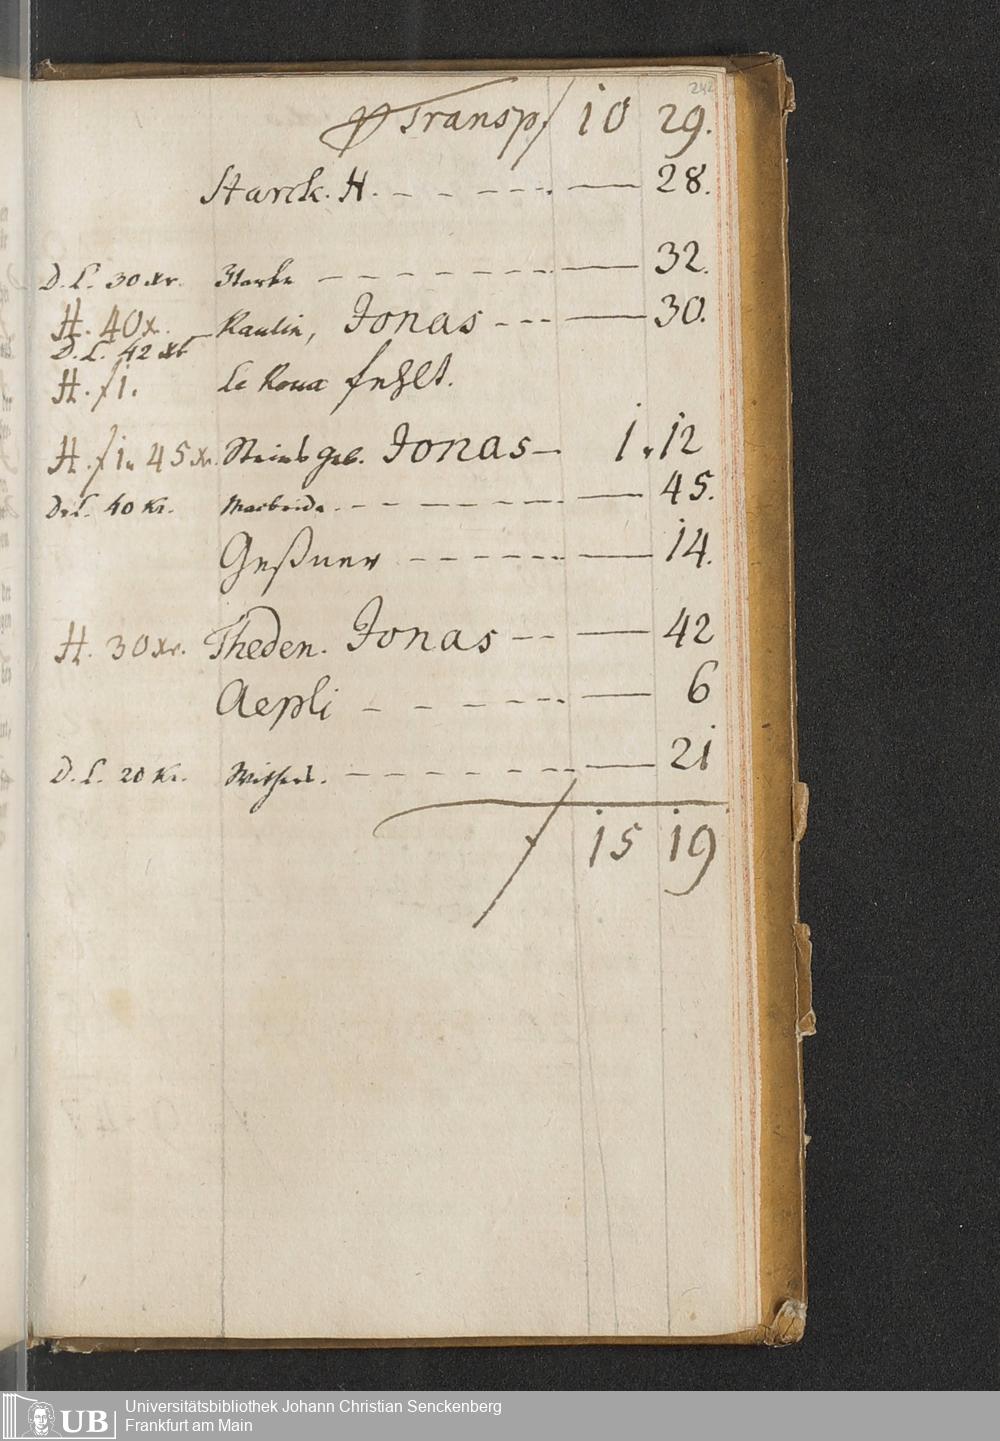 242
Transp. f 10 29.
Starck. H. - - - - - - — 28.
D. L. 30 xr. Starke - - - - - - — 32.
H. 40 x. Raulin, Jonas - - - — 30.
D. L. 42 xr
H. f 1. Le Roux fehlt.
H. f 1. 45 xr. Jonas - 1. 12
D. L. 40 Kr. - - - - - - — 45.
Geßner - - - - - - — 14.
H. 30 xr. Theden. Jonas - - — 42
Aepli - - - - - - — 6
D. L. 20 Kr. - - - - - - — 21
f 15 19
UB
Universitätsbibliothek Johann Christian Senckenberg
Frankfurt am Main